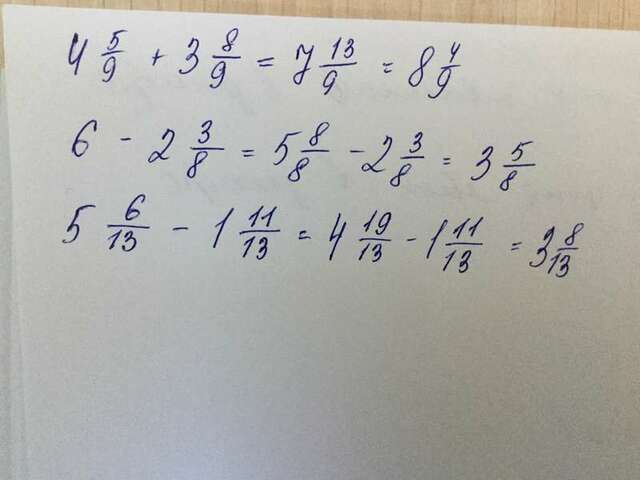 4 5/9 + 3 8/9 = 7 13/9 = 8 4/9
6 - 2 3/8 = 5 8/8 - 2 3/8 = 3 5/8
5 6/13 - 1 11/13 = 4 19/13 - 1 11/13 = 3 8/13